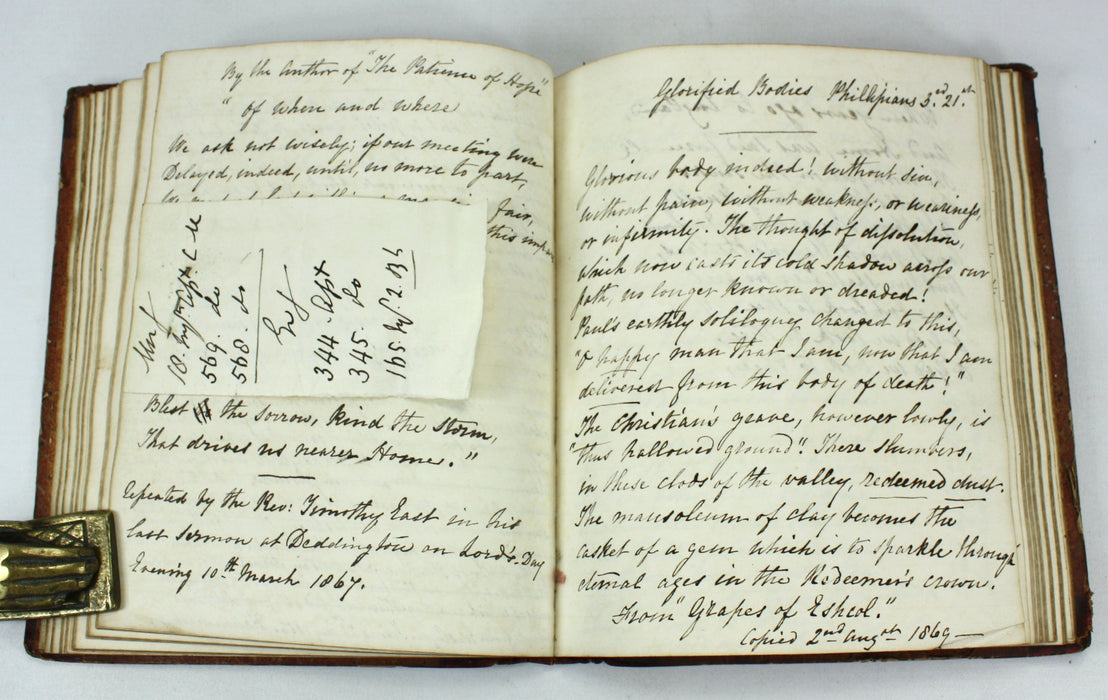 By the Author of "The Patience of Hope"
"Of when and where
We ask not wisely; if our meeting were
Delayed, indeed, until, no more to part,
fair,
this
Blest the sorrow, kind the storm,
That drives us nearer Home."
Repeated by the Rev: Timothy East in his
last sermon at Deddington on Lord's-Day
Evening 10th March 1867.
569. do
568. do
344.
345. do
165.
Glorified Bodies Phillipians 3rd 21st
Glorious body indeed! without sin,
without pain, without weakness, or weariness,
or infirmity. The thought of dissolution,
which now casts its cold shadow across our
path, no longer known or dreaded!
Paul's earthly soliloquy changed to this,
"O happy man that I am, now that I am
delivered from this body of death!"
The Christian's grave, however lowly, is
"thus hallowed ground". There slumbers,
in these clods of the valley, redeemed dust.
The mausoleum of clay becomes the
casket of a gem which is to sparkle through
eternal ages in the Redeemer's crown.
From "Grapes of Eshcol."
Copied 2nd Augst 1869